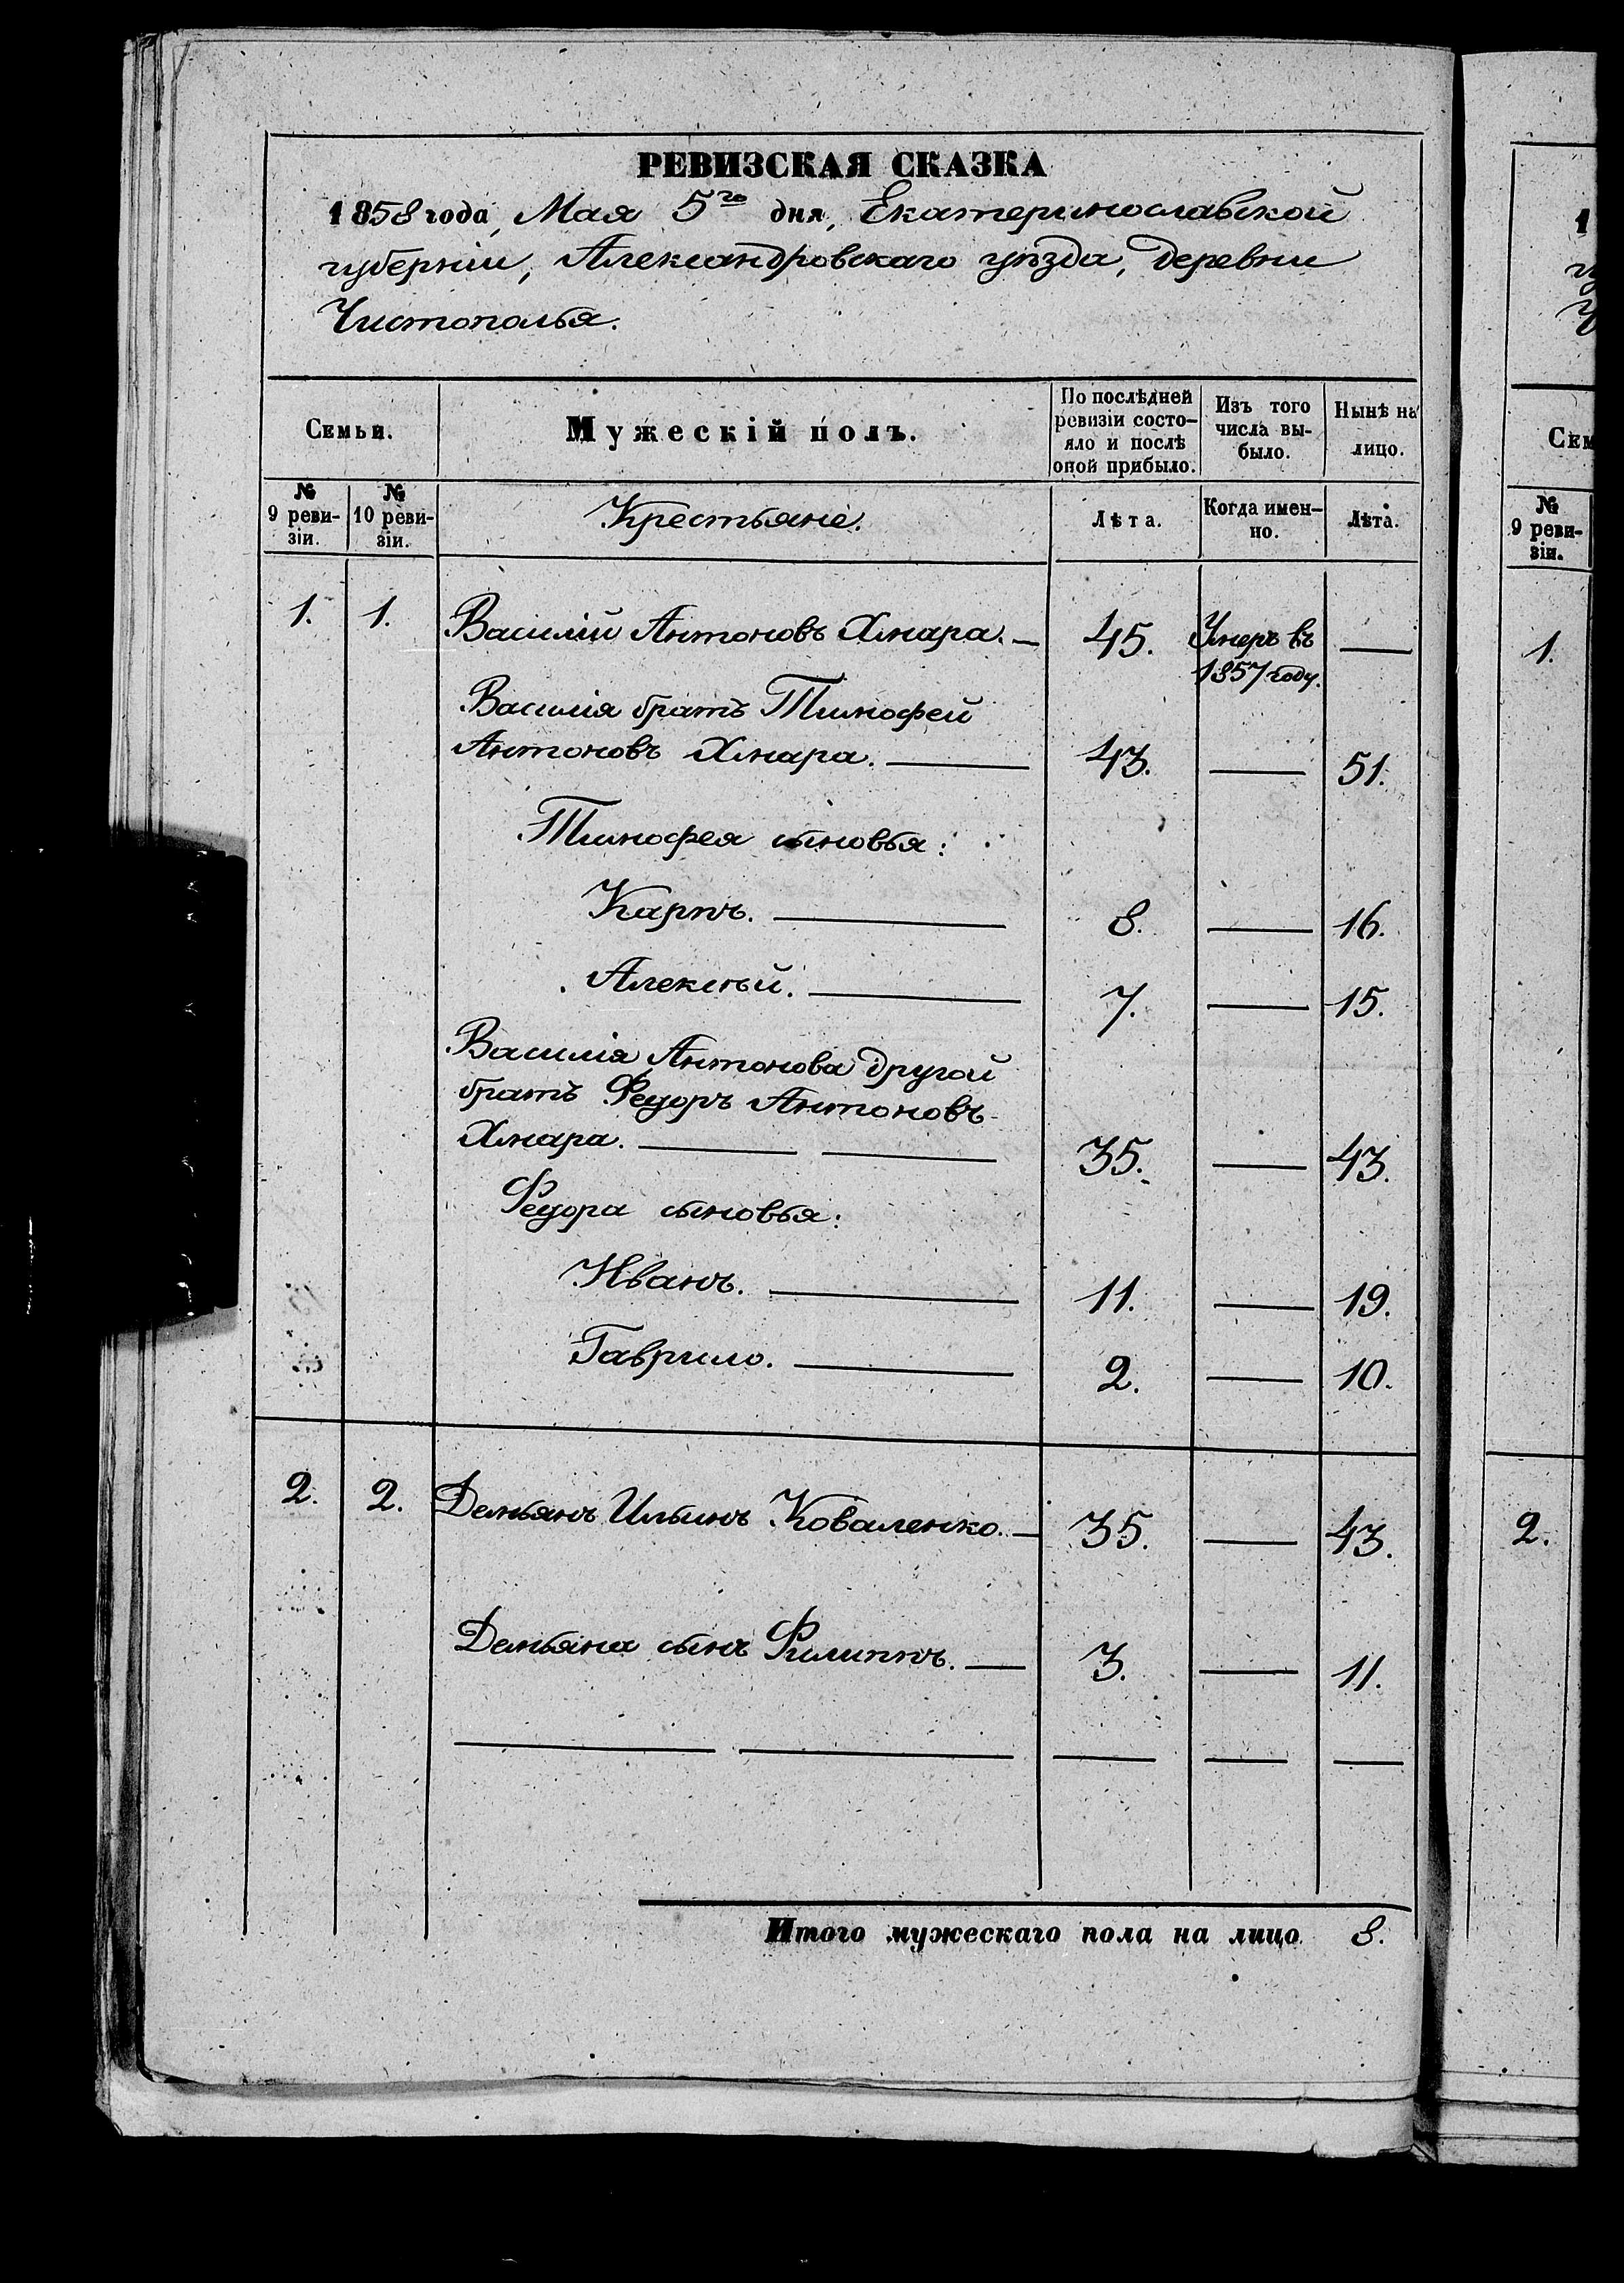 РЕВИЗСКАЯ СКАЗКА
1858 года, Мая 5го дня, Екатеринославской
губерніи, Александровскаго уѣзда, деревни
Чистополья.
Семьи.
Мужескій полъ.
По послѣдней
ревизіи состо-
яло и послѣ
оной прибыло.
Изъ того
числа вы-
было.
Нынѣ на
лицо.
№
9 реви-
зіи.
№
10 реви-
зіи.
Крестьяне.
Лѣта.
Когда имен-
но.
Лѣта.
1. 1. Василій Антоновъ Хмара. — 45. Умеръ въ —
1857 году.
Василія братъ Тимофей
Антоновъ Хмара. — 43. — 51.
Тимофея сыновья:
Карпъ. — 8. — 16.
Алексѣй. — 7. — 15.
Василія Антонова другой
братъ Федоръ Антоновъ
Хмара. — — 35. — 43.
Федора сыновья:
Иванъ. — 11. — 19.
Гаврило. — 2. — 10.
2. 2. Демьянъ Ильинъ Коваленко. — 35. — 43.
Демьяна сынъ Филиппъ. — 3. — 11.
Итого мужескаго пола на лицо 8.
1
Сем
№
9 реви-
зіи.
1.
2.